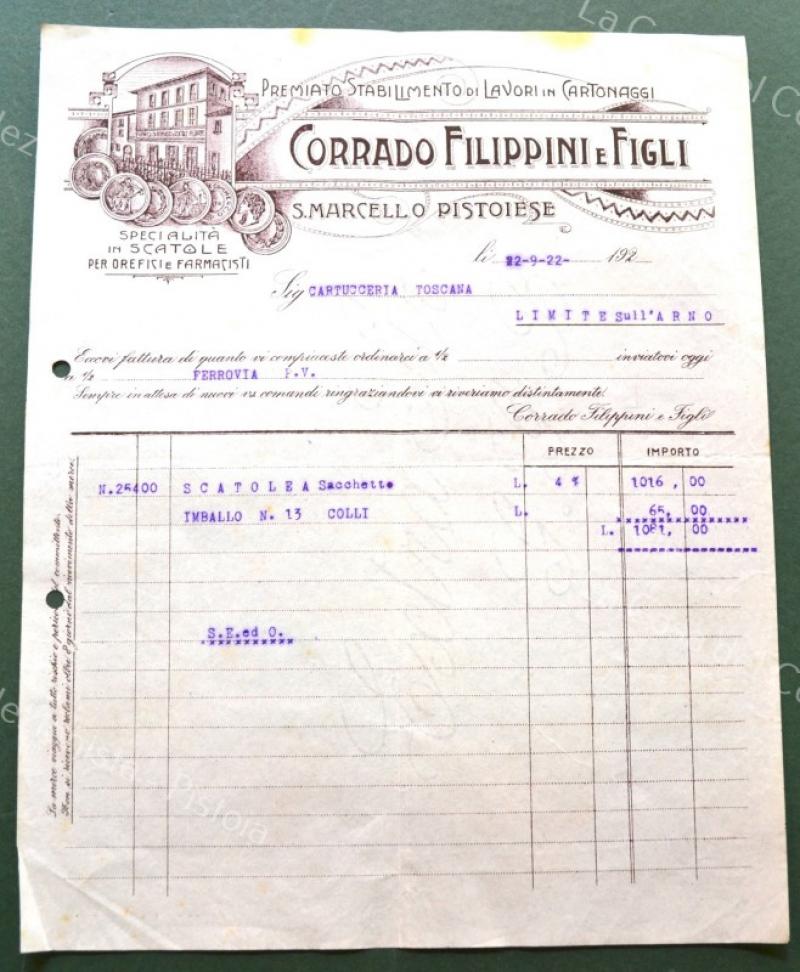 PREMIATO STABILIMENTO DI LAVORI IN CARTONAGGI
CORRADO FILIPPINI E FIGLI
S. MARCELLO PISTOIESE
SPECIALITÀ
IN SCATOLE
PER OREFICI E FARMACISTI
li 22-9-22- 192
Sig CARTUCCERIA TOSCANA
LIMITE sull'ARNO
Eccovi fattura di quanto vi compiaceste ordinarci a ½ inviatovi oggi
a ½ FERROVIA P.V.
Sempre in attesa di nuovi vs comandi ringraziandovi vi riveriamo distintamente.
Corrado Filippini e Figli
PREZZO IMPORTO
N.25400 SCATOLE A Sacchetto L. 4 % 1016,00
IMBALLO N. 13 COLLI L. 65,00
L. 1081,00
S.E.ed O.
La merce viaggia a tutto rischio e pericolo del committente.
Non si ricevono reclami oltre 8 giorni dal ricevimento della merce.